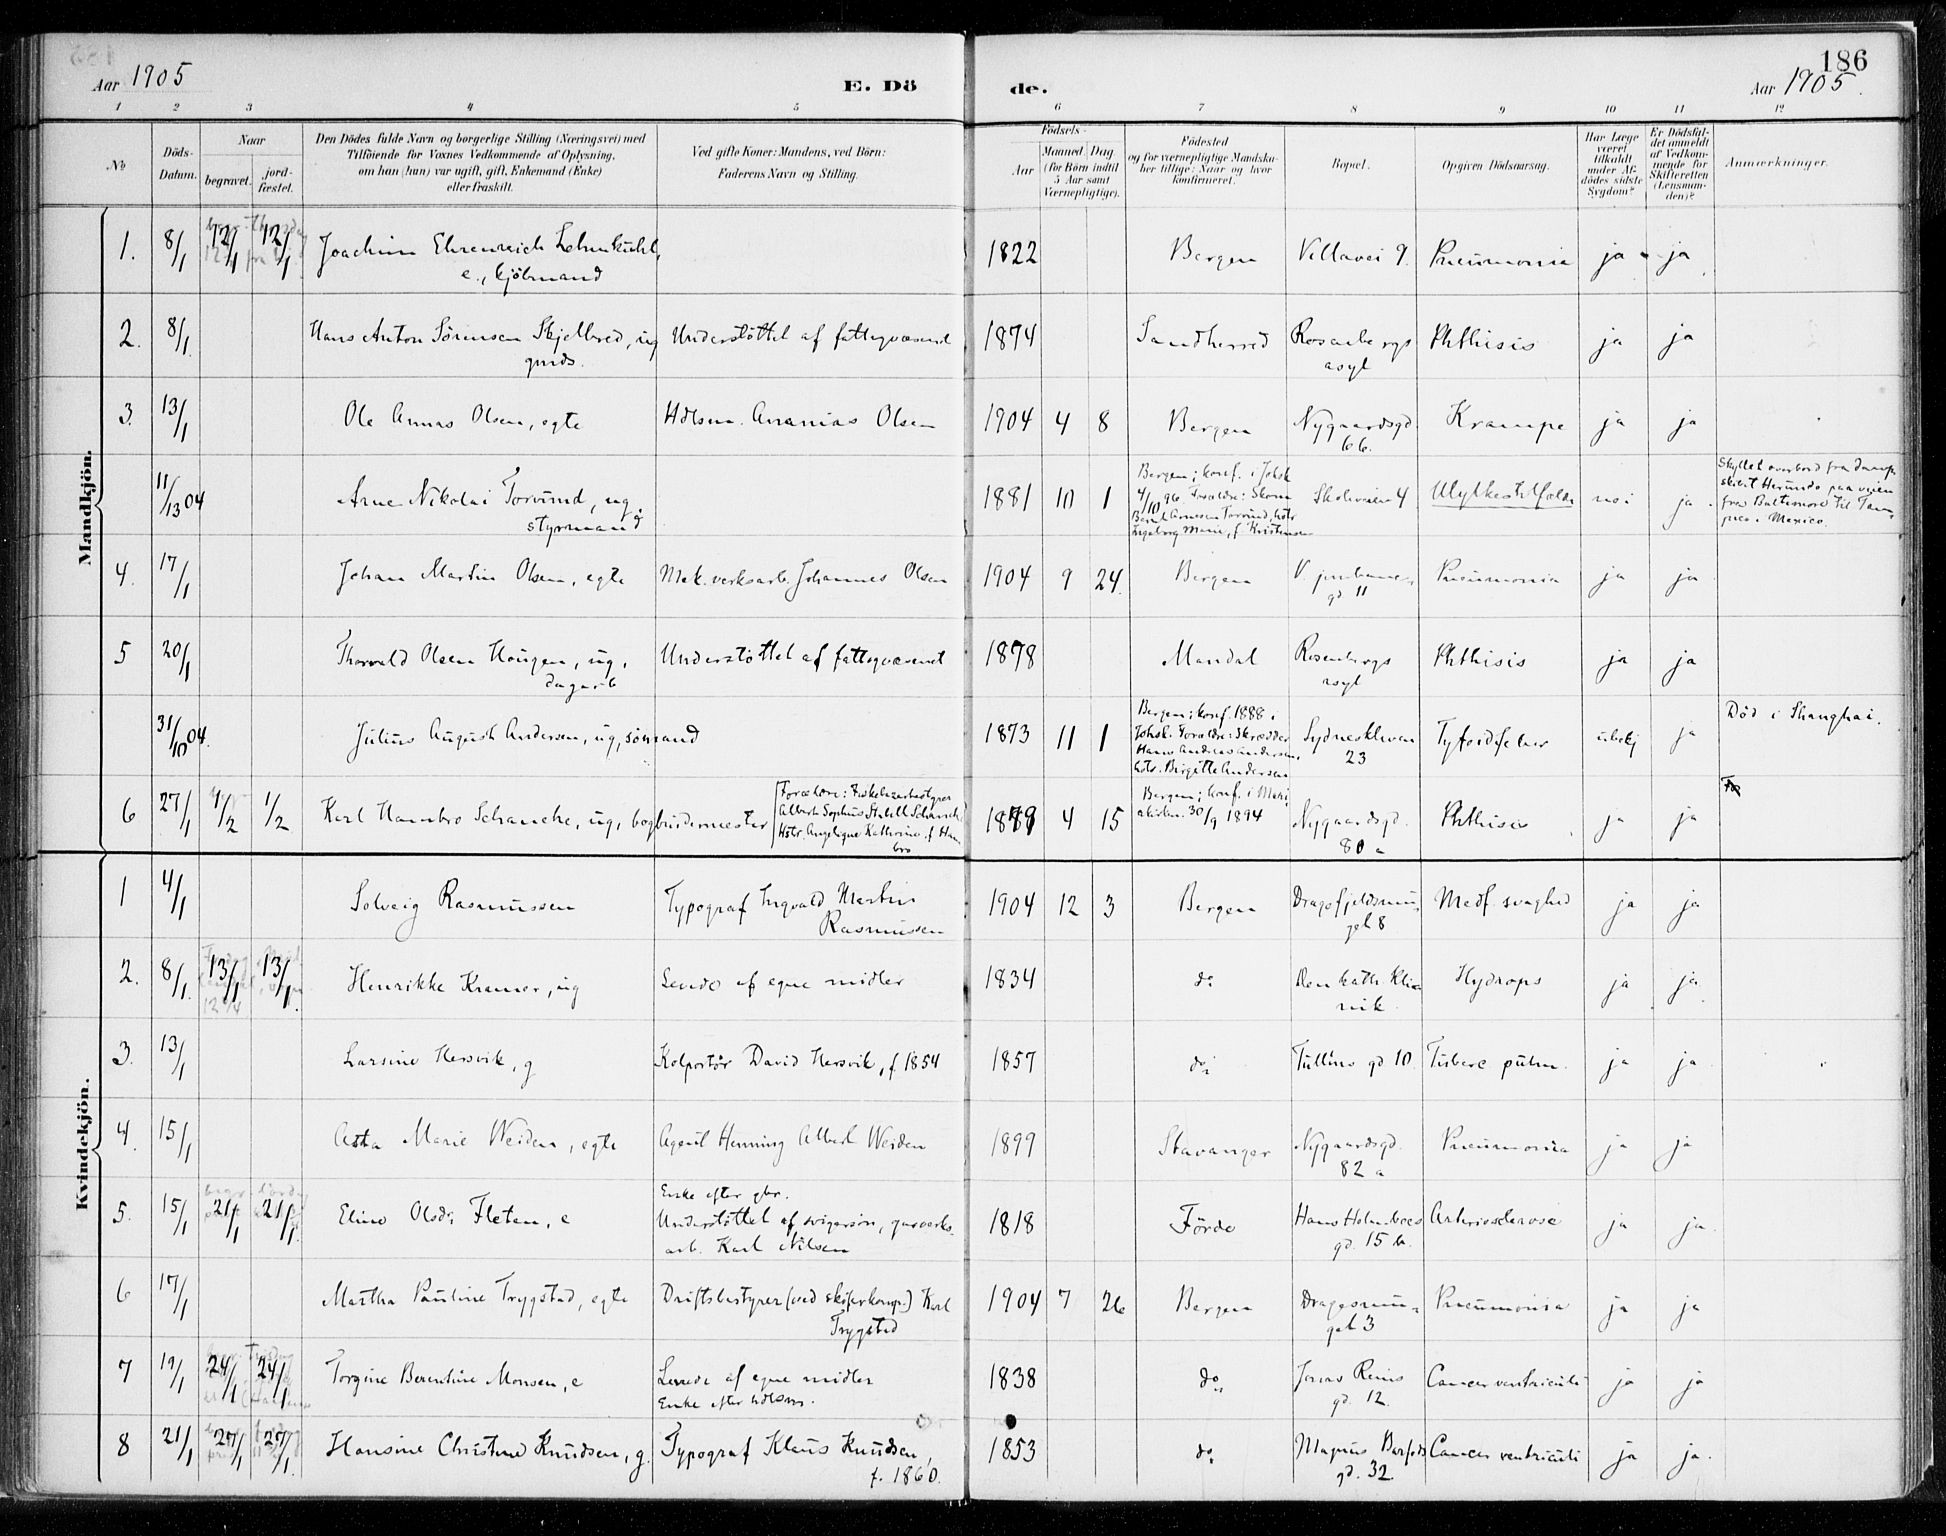 186
Aar 1905
E. Dö
de.
Aar 1905.
1 2 3 4 5 6 7 8 9 10 11 12
No.
Döds-Datum.
Naar
begravet.
jordfæstet.
Den Dödes fulde Navn og borgerlige Stilling (Næringsvei) med
Tilföiende for Voxnes Vedkommende af Oplysning,
om han (hun) var ugift, gift, Enkemand (Enke)
eller fraskilt.
Ved gifte Koner: Mandens, ved Börn:
Faderens Navn og Stilling.
Födsels-
Aar
Maaned. Dag.
(for Börn indtil
5 Aar samt
Værnepligtige).
Födested
og for værnepligtige Mandskaber tillige: Naar og hvor
konfirmeret.
Bopæl.
Opgiven Dödsaarsag.
Har Læge
været
tilkaldt
under Afdödes sidste
Sygdom?
Er Dödsfaldet anmeldt
af Vedkommende for
Skifteretten
(Lensmanden)?
Anmærkninger.
Mandkjön.
1. 8/1 12/1 12/1 Joachim Ehrenreich Lehmkuhl, 1822 Bergen Villavei 9. Pneumonia ja ja
e., kjöbmand
2. 8/1 Hans Anton Sörensen Skjelbred, ug Understöttet af fattigvæsenet 1874 Sandherred Rosenbergs Phthisis ja ja
asyl
3. 13/1 Ole Annas Olsen, egte Hdlsm. Ananias Olsen 1904 4 8 Bergen Nygaardsgd. Krampe ja ja
66.
11/13 04 Arne Nikolai Torvund, ug. 1881 10 1 Skolveien 4 Ulykkestilfælde nei ja
styrmand
Bergen; konf. i Johsk.
4/10 96. Forældre:
Ingeborg Marie, f. Kristensen
Skyllet overbord fra damp-
skibet Herundo paa veien
fra Baltimore til Tam-
pico i Mexico.
4. 17/1 Johan Martin Olsen, egte Mek. verksarb. Johannes Olsen 1904 9 24. Bergen V. jernbane- Pneumonia ja ja
gd. 11
5 20/1 Thorvald Olsen Hougen, ug, Understöttet af fattigvæsenet 1878 Mandal Rosenbergs Phthisis ja ja
dagarb asyl
31/10 04. Julius August Andersen, ug, sömand 1873 11 1 Sydneskleven Tyfoidfeber ubekj ja Död i Shanghai.
23
Bergen; konf. 1888 i
Johsk. Forældre: Skrædder
Hans Andreas Andersen,
hstr. Birgitte Andersen
6 27/1 1/2 1/2 Karl Hambro Schanche, ug, bogbindermester 1879 4 15 Nygaardsgd. Phthisis ja ja
80 a
Forældre:
Albert Sophus Stabell Schanche
Hstr. Angelique Kathrine f. Ham-
bro
Bergen; konf. i Mari-
akirken 30/9 1894
Kvindekjön.
1 4/1 Solveig Rasmussen Typograf Ingvald Martin 1904 12 3 Bergen Dragefjeldsmu- Medf. svaghed ja ja
Rasmussen get 8
2. 8/1 13/1 13/1 Henrikke Kramer, ug Levde af egne midler 1834 do Den kath. kli- Hydrops ja ja
nik
3. 13/1 Larsine Hersvik, g Kolportör David Hersvik, f 1854 1857 do Tullins gd 10. Tuberc. pulm. ja ja
4. 15/1 Asta Marie Weiden, egte Agent Henning Albert Weiden 1899 Stavanger Nygaardsgd. Pneumonia ja ja
82 a
5. 15/1 21/1 21/1 Eline Olsdr. Fleten, e Enke efter gbr. 1818 Förde Hans Holmboes Arteriosclerose ja ja
Understöttet af svigersön, gasverks- gd. 15 b.
arb. Karl Nilsen
6 17/1 Martha Pauline Trygstad, egte Driftsbestyrer (ved skiferkomp.) Karl 1904 7 26 Bergen Dragesmu- Pneumonia ja ja
Trygstad get 3
7 19/1 24/1 24/1 Torgine Berentine Monsen, e Levede af egne midler 1838 do Jonas Reins Cancer ventriculi ja ja
Enke efter hdlsm. gd. 12.
8 21/1 27/1 27/1 Hansine Christine Knudsen, g. Typograf Klaus Knudsen, 1853 do Magnus Barfods Cancer ventriculi ja ja
f. 1860. gd. 32.